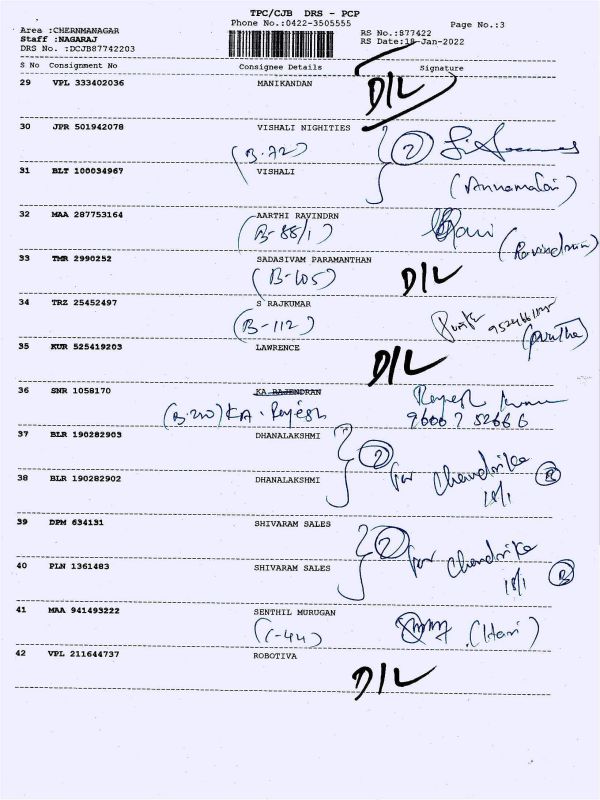 TPC/CJB DRS - PCP
Phone No.:0422-3505555
Page No.:3
Area :CHERNMANAGAR
Staff :NAGARAJ
DRS No. :DCJB87742203
RS No.:877422
RS Date:18-Jan-2022
S No Consignment No Consignee Details Signature
29 VPL 333402036 MANIKANDAN D/L
30 JPR 501942078 VISHALI NIGHITIES
(B-72) 2
31 BLT 100034967 VISHALI
(Annamalai)
32 MAA 287753164 AARTHI RAVINDRN
(B-88/1)
33 TMR 2990252 SADASIVAM PARAMANTHAN
(B-105) D/L
34 TRZ 25452497 S RAJKUMAR
(B-112)
35 KUR 525419203 LAWRENCE D/L
36 SNR 1058170 KA RAJENDRAN
KA. Rajesh Rajesh Kumar
96007 52666
37 BLR 190282903 DHANALAKSHMI
2 for Chandrika
18/1
38 BLR 190282902 DHANALAKSHMI
39 DPM 634131 SHIVARAM SALES
2 for Chandrika
18/1
40 PLN 1361483 SHIVARAM SALES
41 MAA 941493222 SENTHIL MURUGAN
(C-44) (Hari)
42 VPL 211644737 ROBOTIVA
D/L